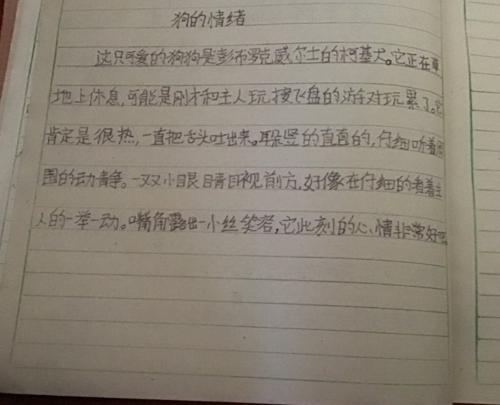 狗的情绪
这只可爱的狗狗是彭布罗克威尔士的柯基犬。它正在草
地上休息,可能是刚才和主人玩接飞盘的游戏玩累了。它
肯定是很热,一直把舌头吐出来。耳朵竖的直直的,仔细听着周
围的动静。一双小眼睛目视前方,好像在仔细的看着主
人的一举一动。嘴角露出一小丝笑容,它此刻的心情非常好吧